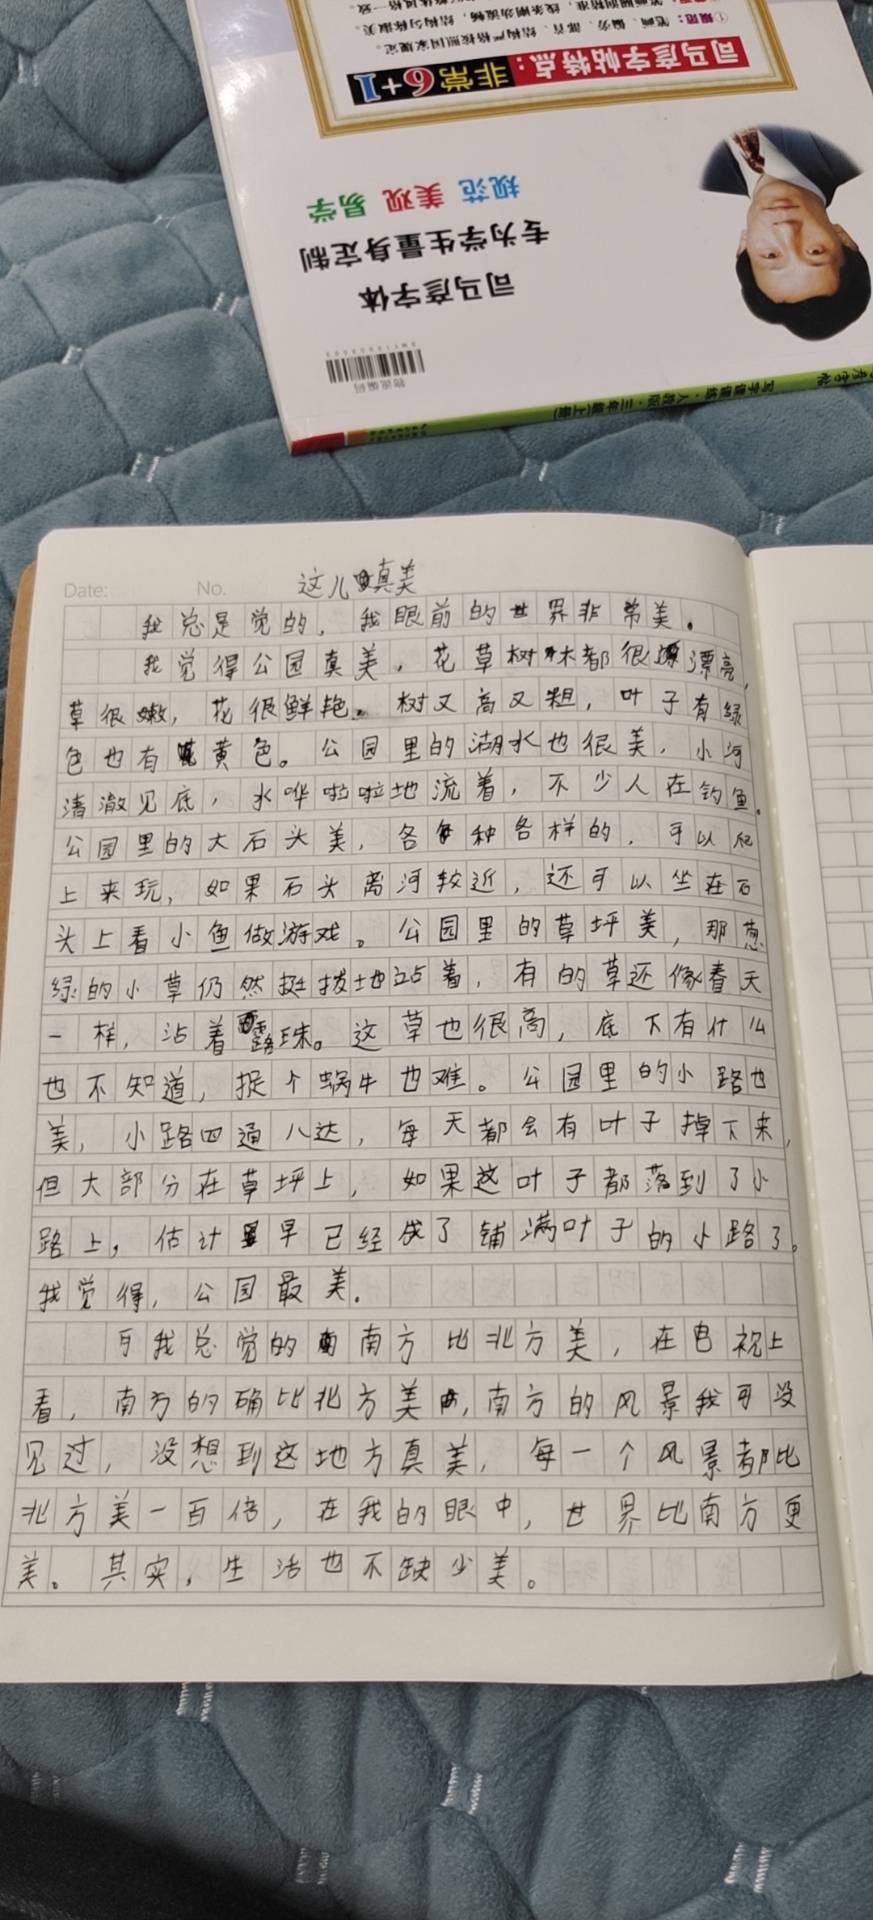 ①规范:笔画、偏旁、部首、结构严格按照国家规定。
司马彦字帖特点:非常6+1
规范 美观 易学
专为学生量身定制
司马彦字体
物流编码
Date:
No.
这儿真美
我总是觉的,我眼前的世界非常美.
我觉得公园真美,花草树林都很漂亮,
草很嫩,花很鲜艳。树又高又粗,叶子有绿
色也有黄色。公园里的湖水也很美,小河
清澈见底,水哗啦啦地流着,不少人在钓鱼。
公园里的大石头美,各种各样的,可以爬
上来玩,如果石头离河较近,还可以坐在石
头上看小鱼做游戏。公园里的草坪美,那葱
绿的小草仍然挺拔地站着,有的草还像春天
一样,沾着露珠。这草也很高,底下有什么
也不知道,捉个蜗牛也难。公园里的小路也
美,小路四通八达,每天都会有叶子掉下来,
但大部分在草坪上,如果这叶子都落到了小
路上,估计早已经成了铺满叶子的小路了。
我觉得,公园最美.
可我总觉的南方比北方美,在电视上
看,南方的确比北方美,南方的风景我可没
见过,没想到这地方真美,每一个风景都比
北方美一百倍,在我的眼中,世界比南方更
美。其实,生活也不缺少美。